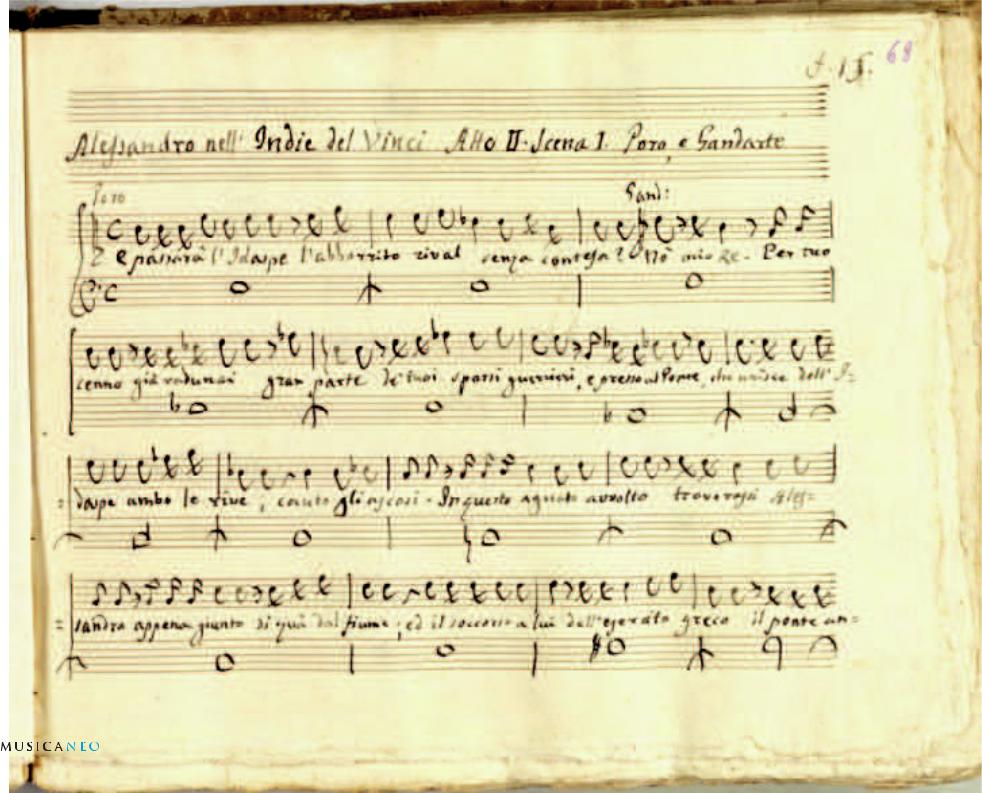 68
f. 15.
Alessandro nell' Indie del Vinci Atto II. Scena I. Poro, e Gandarte
Poro
Gand:
E passarà l'Idaspe l'abborrito rival senza contesa? Nò mio Re. Per tuo
cenno già radunai gran parte de' tuoi sparsi guerrieri, e presso al Ponte, che unisce dell' I=
=daspe ambo le rive, cauto gli ascosi. In questo aguato avvolto troverassi Ales=
=sandro appena giunto di quà dal fiume; ed il soccorso a lui dell'esercito greco il ponte an=
MUSICANEO